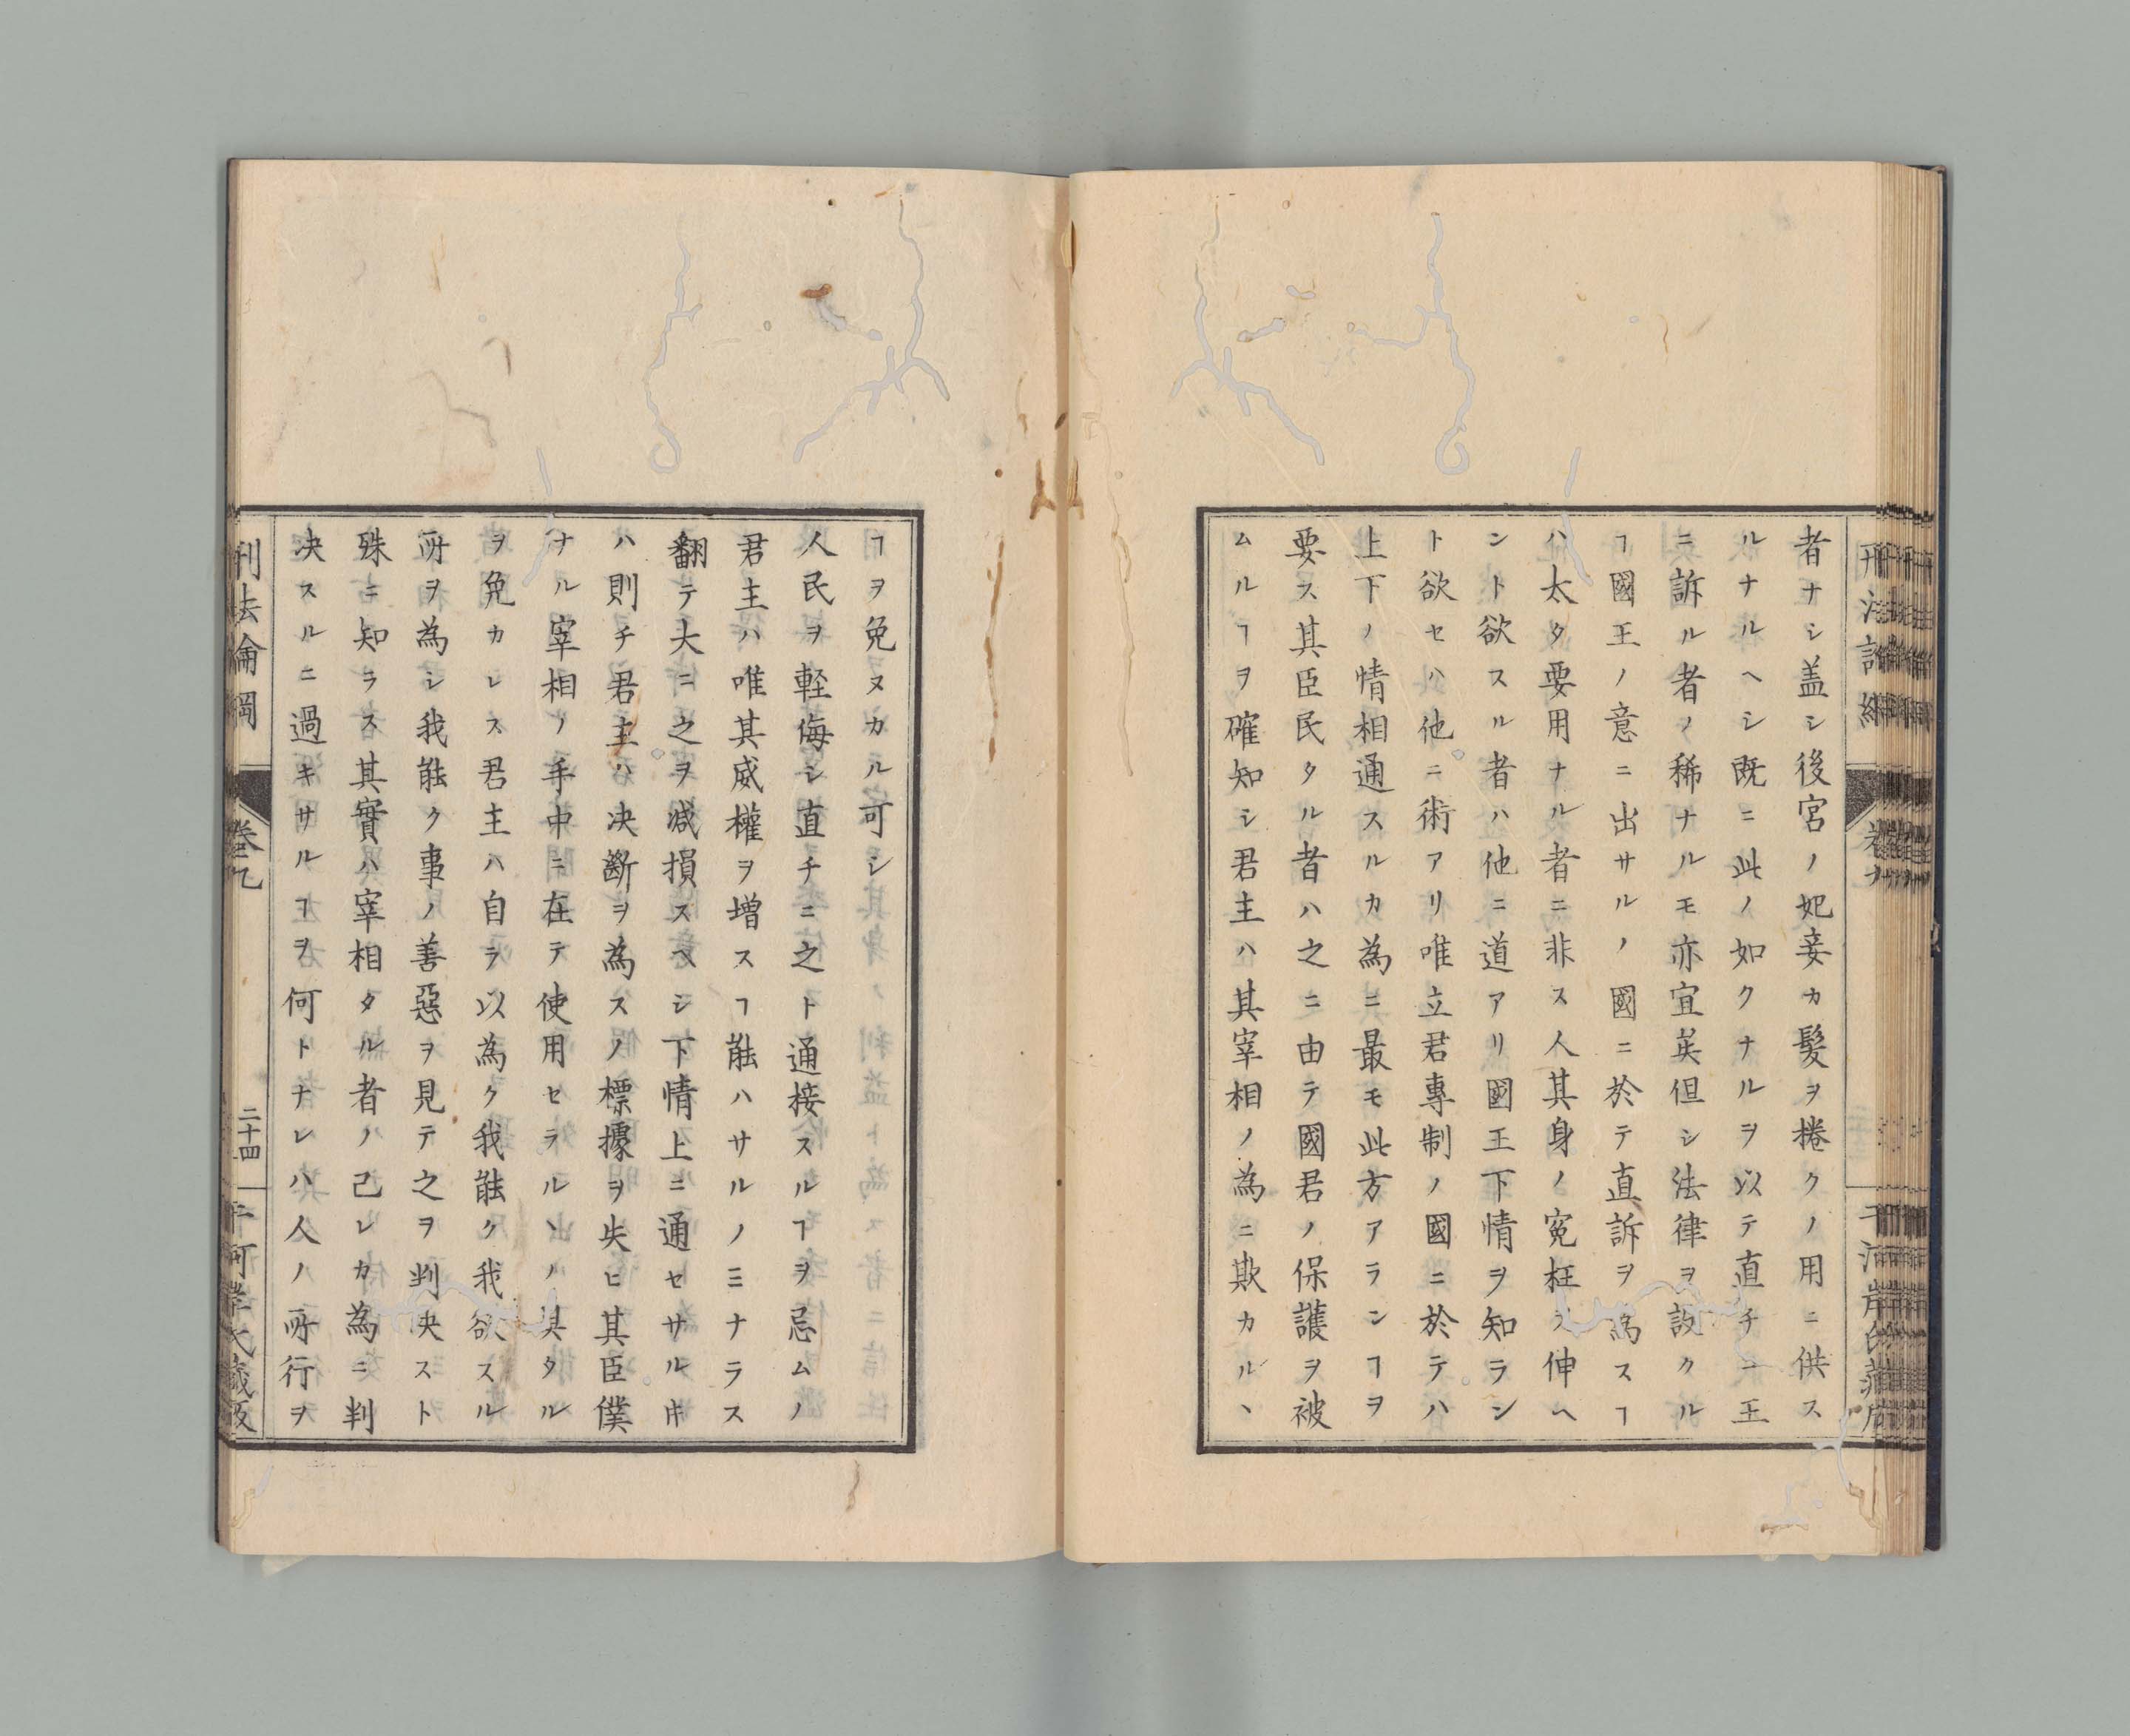 者ナシ盖シ後宮ノ妃妾カ髮ヲ捲クノ用ニ供ス
ルナルヘシ既ニ此ノ如クナルヲ以テ直チニ王
ニ訴ル者ノ稀ナルモ亦宜矣但シ法律ヲ設クル
ヿ國王ノ意ニ出サルノ國ニ於テ直訴ヲ為スヿ
ハ太タ要用ナル者ニ非ス人其身ノ寃枉ヲ伸ヘ
ント欲スル者ハ他ニ道アリ國王下情ヲ知ラン
ト欲セハ他ニ術アリ唯立君專制ノ國ニ於テハ
上下ノ情相通スルカ為ニ最モ此方アランヿヲ
要ス其臣民タル者ハ之ニ由テ國君ノ保護ヲ被
ムルヿヲ確知シ君主ハ其宰相ノ為ニ欺カルヽ
ヿヲ免ヌカル可シ
人民ヲ輕侮シ直チニ之ト通接スルヿヲ忌ムノ
君主ハ唯其威權ヲ增スヿ能ハサルノミナラス
翻テ大ニ之ヲ减損スヘシ下情上ニ通セサル牛
ハ則チ君主ハ决斷ヲ為スノ標據ヲ失ヒ其臣僕
ナル宰相ノ手中ニ在テ使用セラルヽノ具タル
ヲ免カレス君主ハ自ラ以為ク我能ク我欲スル
所ヲ為シ我能ク事ノ善惡ヲ見テ之ヲ判决スト
殊ニ知ラス其實ハ宰相タル者ノ己レカ為ニ判
决スルニ過キサルヿヲ何トナレハ人ノ所行ヲ
刑法論綱
卷九
二十四
千河岸氏藏版